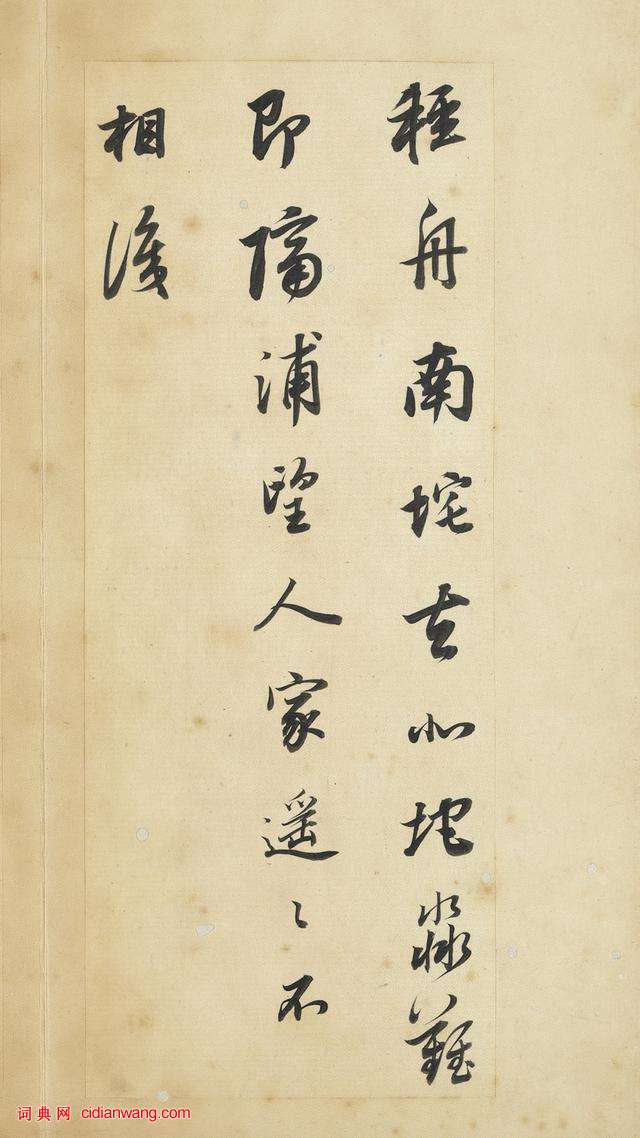 輕舟南垞去北垞淼難
即隔浦望人家遥〻不
相識
词典网 cidianwang.com